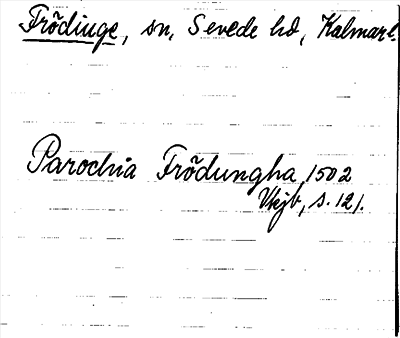 Frödinge, sn, Sevede hd, Kalmar l.
Parochia Frödungha, 1502
Vkjb, s. 121.